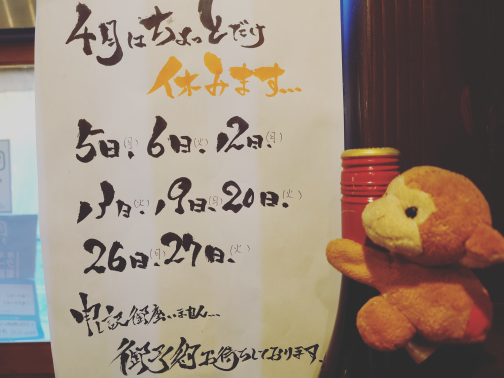 4月はちょっとだけ
休みます…
5日(月)、6日(火)、12日(月)、
13日(火)、19日(月)、20日(火)、
26日(月)、27日(火)、
申し訳御座いません…
御予約お待ちしております。